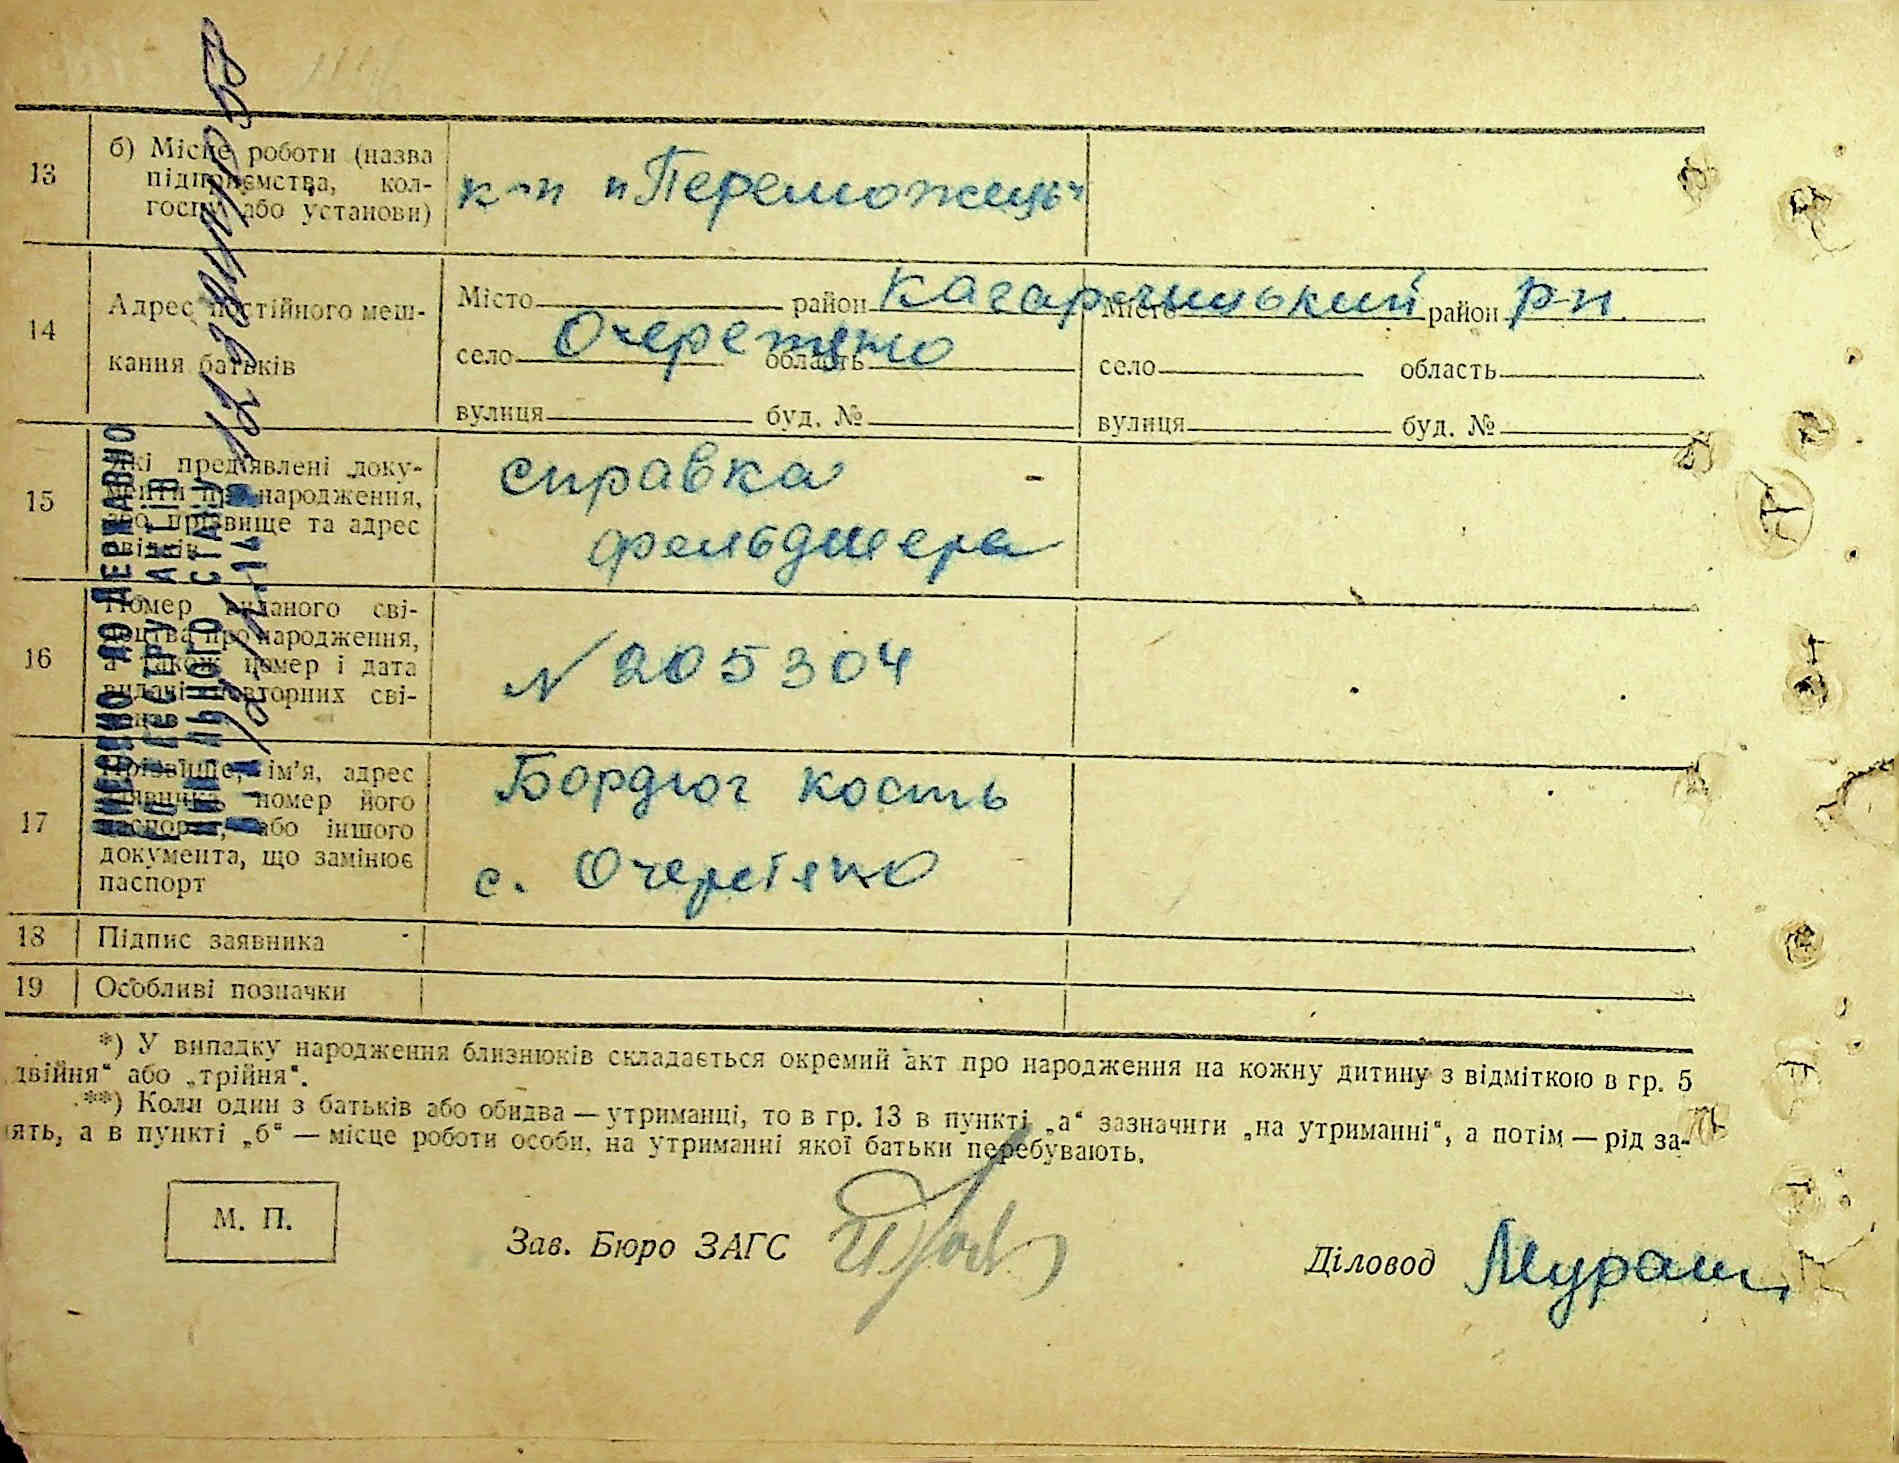 13 б) Місце роботи (назва
підприємства, кол-
госпу або установи)
к-п „Переможець"
14 Адрес постійного меш-
кання батьків
Місто район Кагарлицький Місто район р-н
село Очеретяно область село область
вулиця буд. № вулиця буд. №
15 Які пред'явлені доку-
менти про народження,
або прізвище та адрес
свідків
справка
фельдшера
16 Номер виданого сві-
доцтва про народження,
а також номер і дата
видачі повторних сві-
N 205304
17 Прізвище, ім'я, адрес
заявника, номер його
паспорта, або іншого
документа, що замінює
паспорт
Бордюг Кость
с. Очеретяно
18 Підпис заявника
19 Особливі позначки
*) У випадку народження близнюків складається окремий акт про народження на кожну дитину з відміткою в гр. 5
двійня" або „трійня".
**) Коли один з батьків або обидва — утриманці, то в гр. 13 в пункті „а" зазначити „на утриманні", а потім — рід за-
ять, а в пункті „б" — місце роботи особи, на утриманні якої батьки перебувають.
М. П.
Зав. Бюро ЗАГС
Діловод Мураш
ВНЕСЕНО ДО ДЕРЖАВНО
РЕЄСТРУ АКТІВ
ЦИВІЛЬНОГО СТАНУ